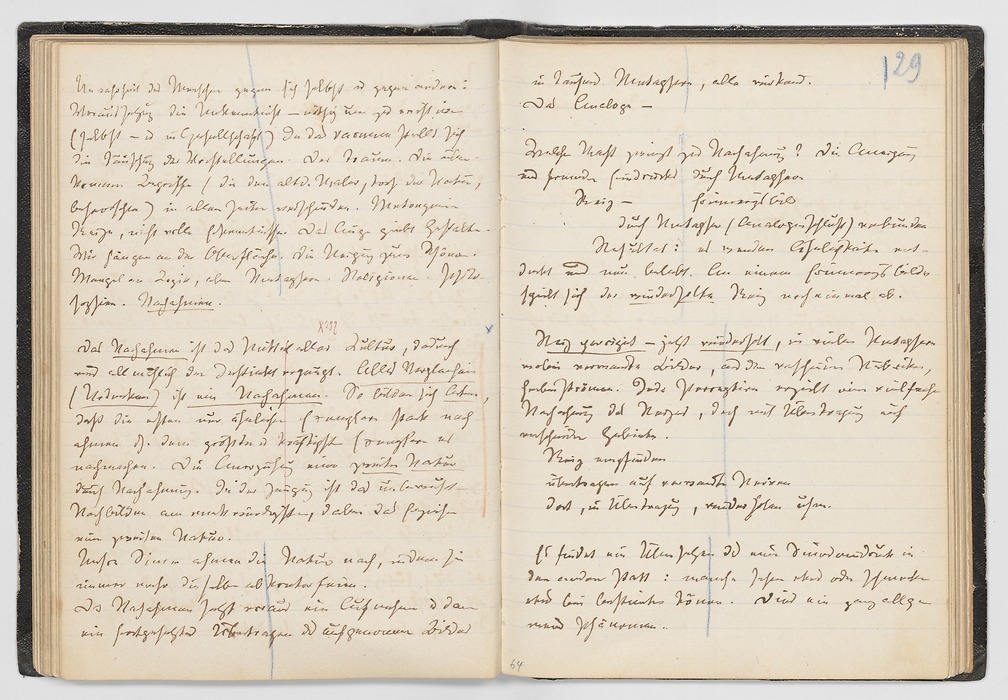 Unwahrheit des Menschen gegen sich selbst u gegen andere:
Voraussetzung die Unkenntniß — nöthig um zu existiren
(selbst — u in Gesellschaft). In das vacuum stellt sich
die Täuschung der Vorstellungen. Der Traum. Die über-
kommenen Begriffe (die den altd. Maler, trotz der Natur,
beherrschen) in allen Zeiten verschieden. Metonymien.
Reize, nicht volle Erkenntnisse. Das Auge giebt Gestalten.
Wir hängen an der Oberfläche. Die Neigung zum Schönen.
Mangel an Logik, aber Metaphern. Religionen. Philo-
sophien. Nachahmen.
Das Nachahmen ist das Mittel aller Kultur, dadurch
wird allmählich der Instinkt erzeugt. Alles Vergleichen
(Urdenken) ist ein Nachahmen. So bilden sich Arten,
daß die ersten nur ähnliche Exemplare stark nach
ahmen d.h. dem größten u kräftigsten Exemplare es
nachmachen. Die Anerziehung einer zweiten Natur
durch Nachahmung. In der Zeugung ist das unbewußte
Nachbilden am merkwürdigsten, dabei das Erziehen
einer zweiten Natur.
Unsre Sinne ahmen die Natur nach, indem sie
immer mehr dieselbe abkonterfeien.
Das Nachahmen setzt voraus ein Aufnehmen u dann
ein fortgesetztes Übertragen des aufgenommenen Bildes
129
in tausend Metaphern, alle wirkend.
Das Analoge —
Welche Macht zwingt zur Nachahmung? Die Aneignung
eines fremden Eindrucks durch Metaphern.
Reiz — Erinnerungsbild
durch Metapher (Analogieschluß) verbunden.
Resultat: es werden Ähnlichkeiten ent-
deckt und neu belebt. An einem Erinnerungsbilde
spielt sich der wiederholte Reiz noch einmal ab.
Reiz percipirt — jetzt wiederholt, in vielen Metaphern
wobei verwandte Bilder, aus den verschiedenen Rubriken,
herbeiströmen. Jede Perception erzielt eine vielfache
Nachahmung des Reizes, doch mit Übertragung auf
verschiedene Gebiete.
Reiz empfunden
übertragen auf verwandte Nerven
dort, in Übertragung, wiederholt usw.
Es findet ein Übersetzen des einen Sinneseindrucks in
den andern statt: manche sehen etwas oder schmecken
etwas beim bestimmten Tönen. Dies ein ganz allge-
meines Phänomen.
64